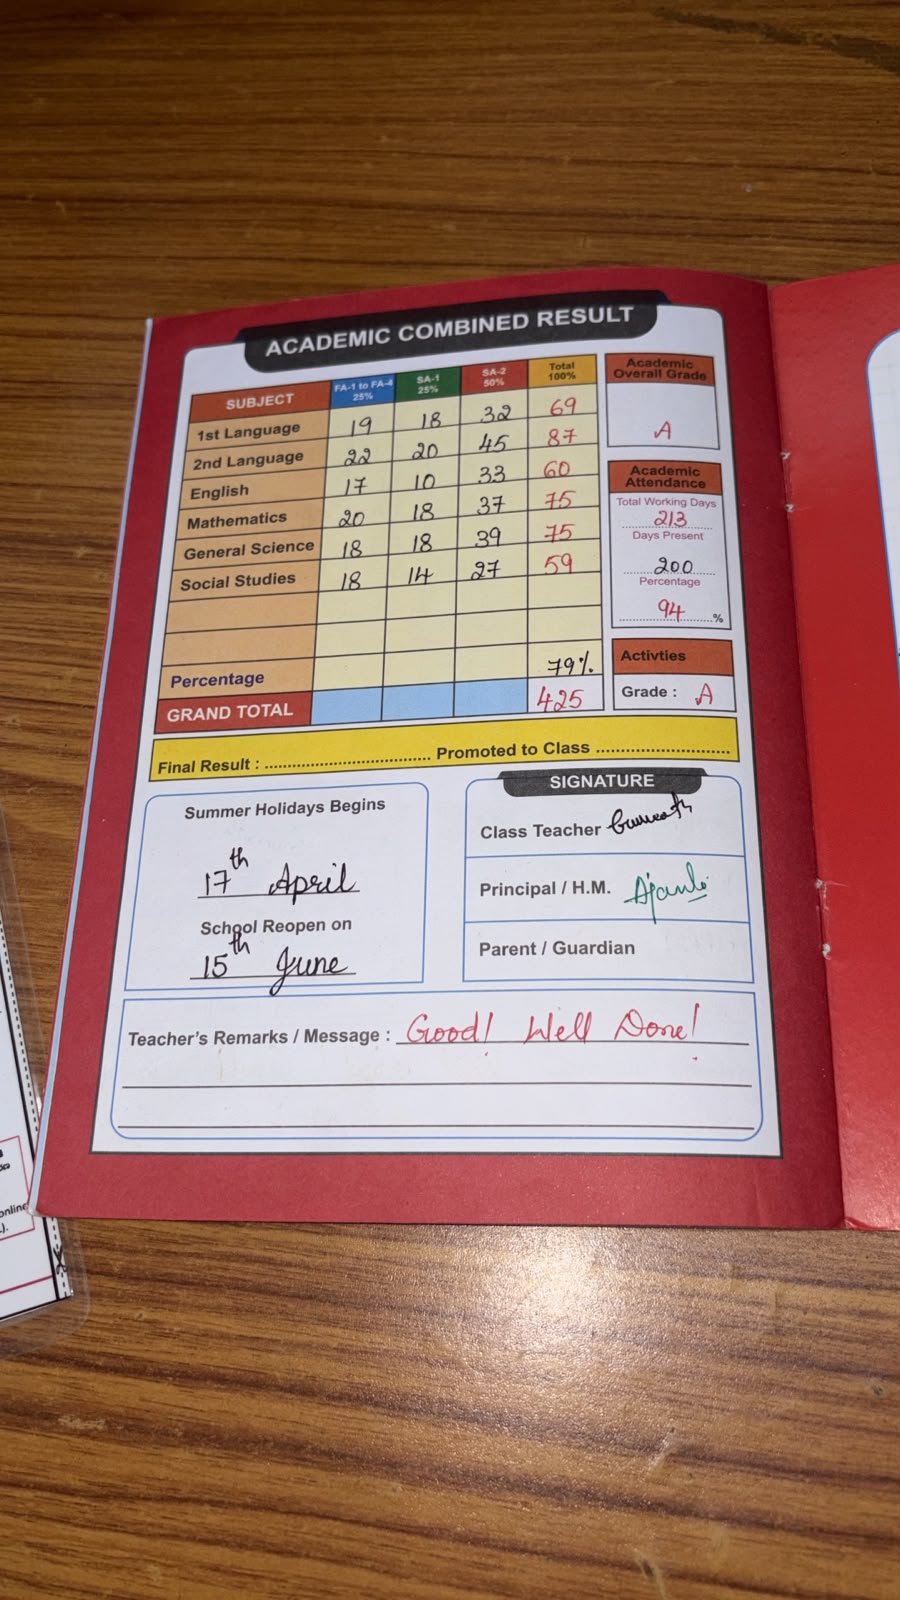 ACADEMIC COMBINED RESULT
SUBJECT FA-1 to FA-4 25% SA-1 25% SA-2 50% Total 100%
1st Language 19 18 32 69
2nd Language 22 20 45 87
English 17 10 33 60
Mathematics 20 18 37 75
General Science 18 18 39 75
Social Studies 18 14 27 59
Percentage 79%
GRAND TOTAL 425
Academic
Overall Grade
A
Academic
Attendance
Total Working Days
213
Days Present
200
Percentage
94 %
Activties
Grade : A
Final Result : Promoted to Class
Summer Holidays Begins
17th April
School Reopen on
15th June
SIGNATURE
Class Teacher
Principal / H.M.
Parent / Guardian
Teacher's Remarks / Message : Good! Well Done!
online